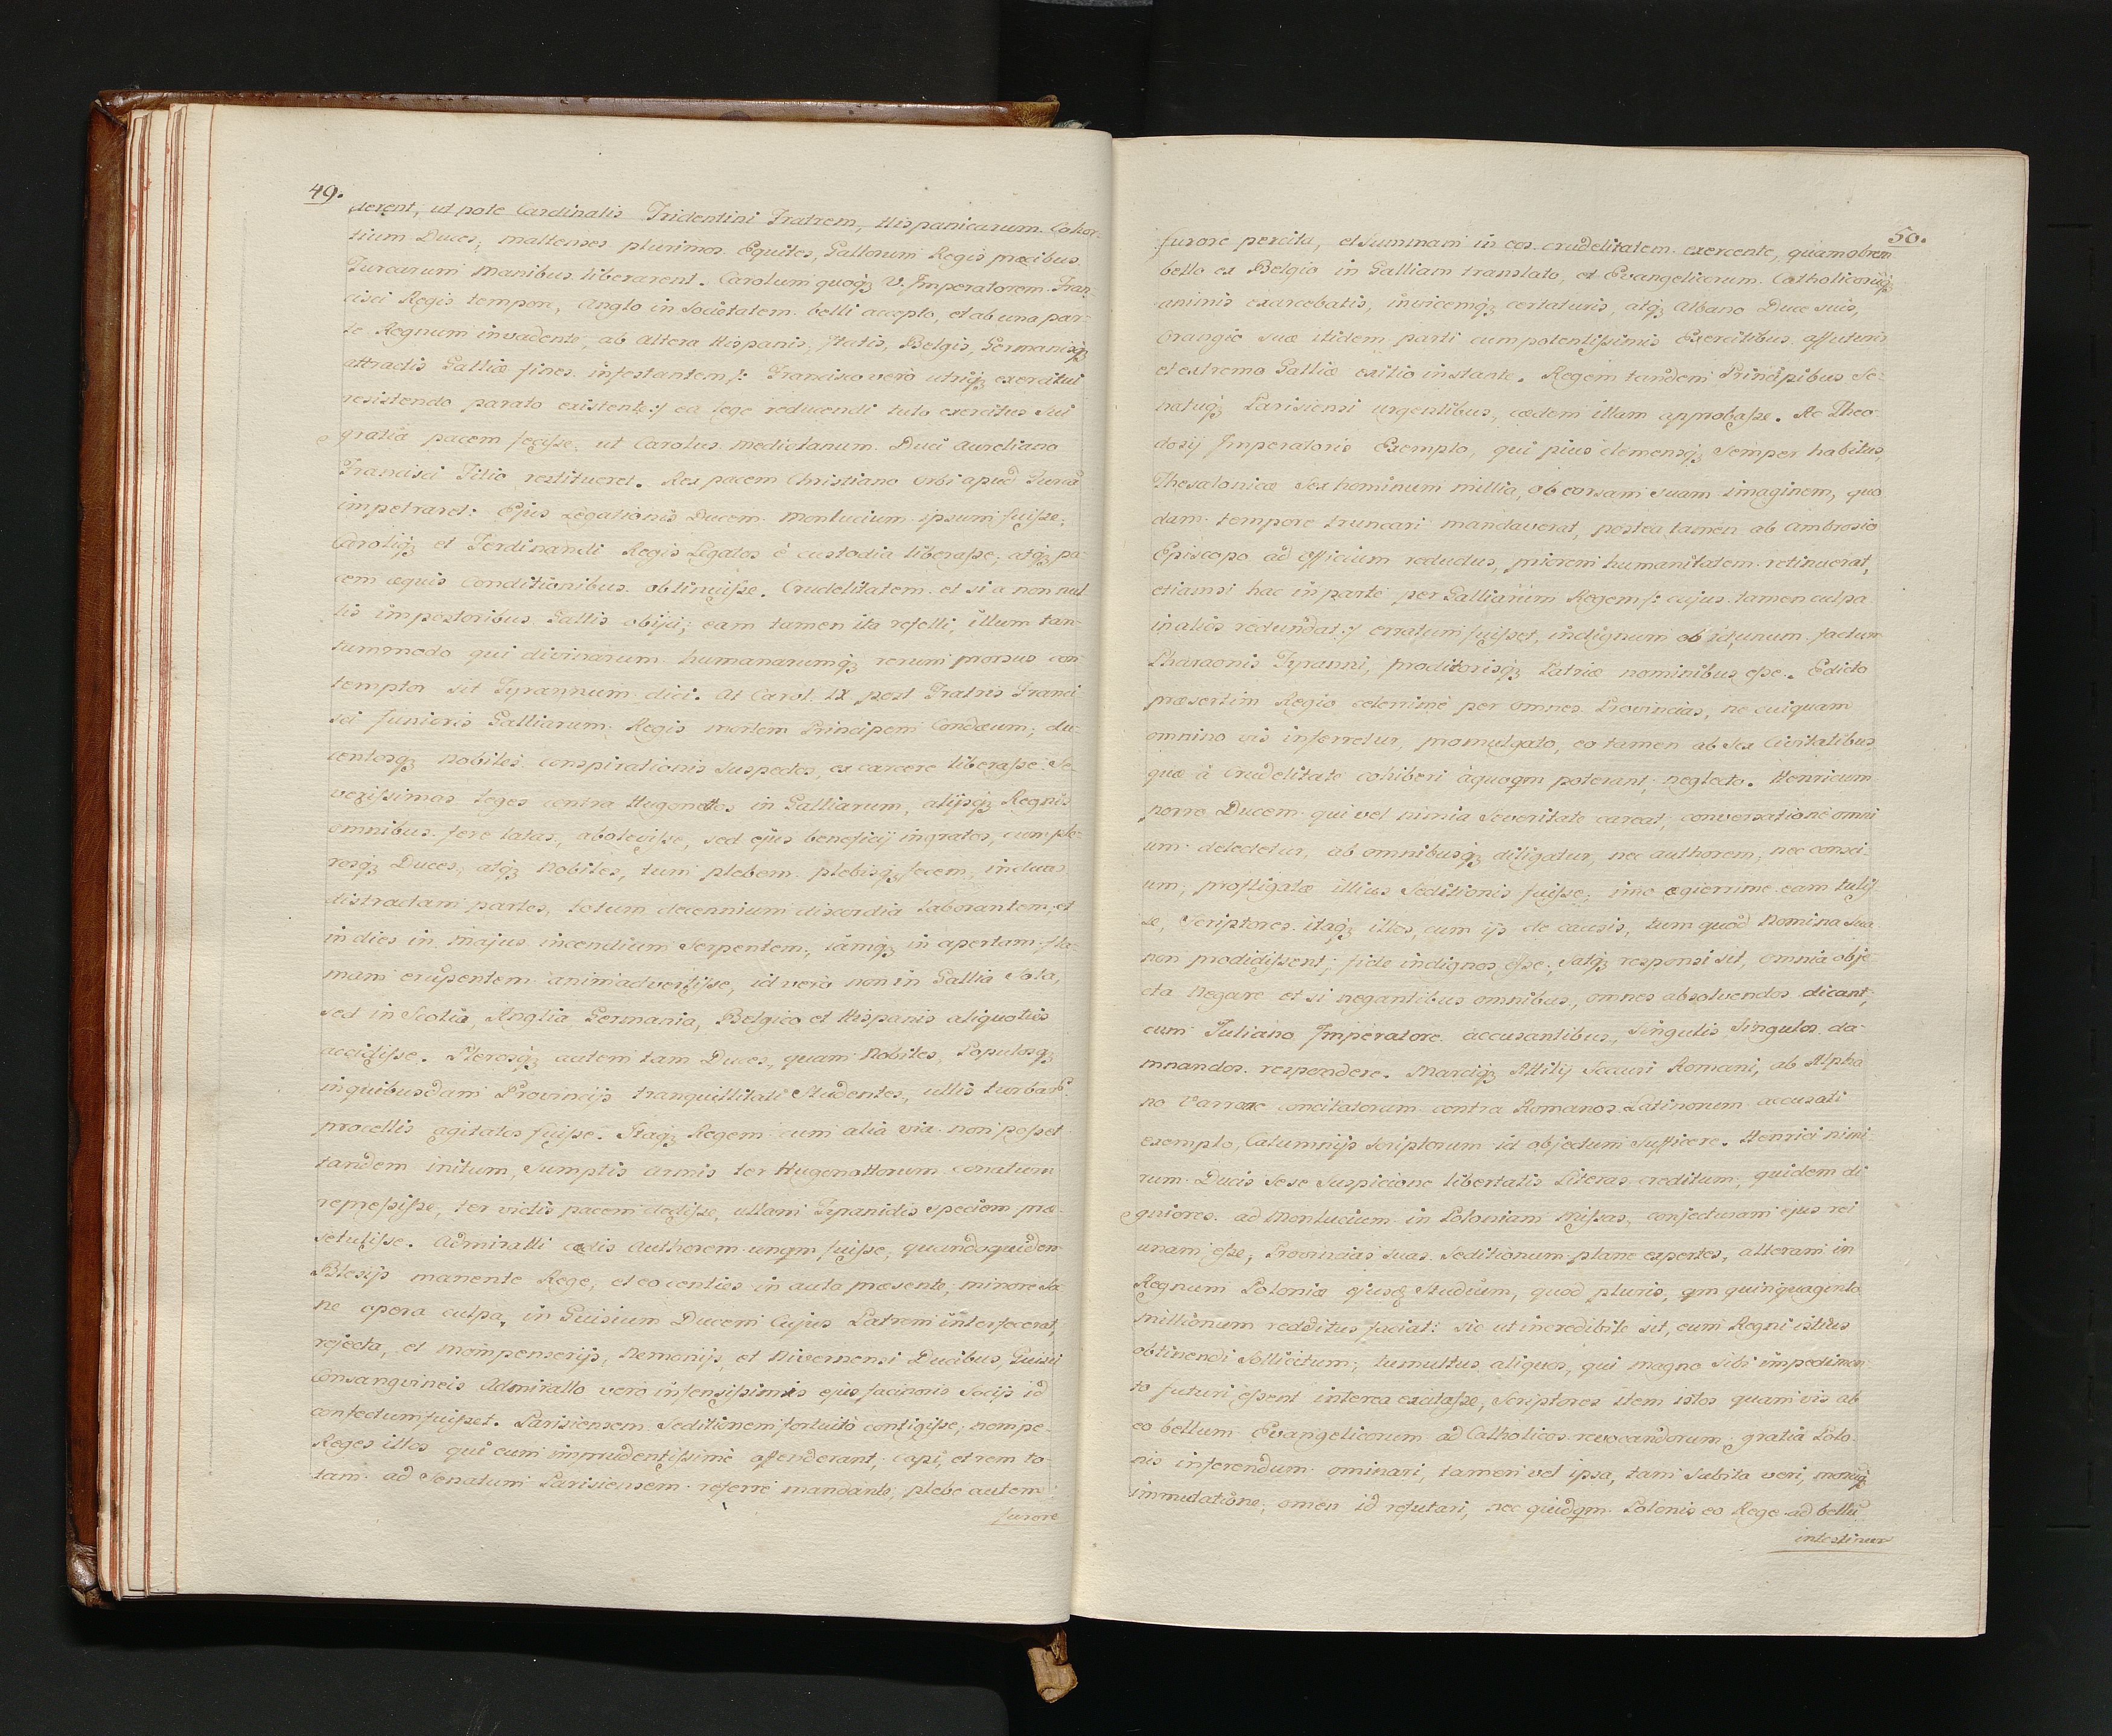 49.
derent, ut pote Cardinalis Tridentini Fratrem, Hispanicarum Cohor-
tium Duces, maltenses plurimos Equites, Gallorum Regis precibus
Turcarum manibus liberarent. Carolum quoqȝ V. Imperatorem Fran-
cisci Regis tempore, Anglo in Societatem belli accepto, et ab una par-
te Regnum invadente, ab altera Hispanis, Italis, Belgis, Germanisqȝ
attractis Galliæ fines infestantem /: Francisco verò utriqȝ exercitui
resistendo parato existente :/ ea lege reducendi tuto exercitus sui
gratiâ pacem fecisse, ut Carolus mediolanum Duci Aureliano
Francisci Filio restitueret. Rex pacem Christiano orbi apud Turcâ
impetraret: Ejus Legationis Ducem Monlucium ipsum fuisse,
Caroliqȝ et Ferdinandi Regis Legatos è custodia liberasse, atqȝ pa-
cem æquis Conditionibus obtinuisse. Crudelitatem et si a non nul-
lis impostoribus Gallis obijci, eam tamen ita refelli, illum tan-
tummodo qui divinarum humanarumqȝ rerum prorsus con-
temptor sit Tyrannum dici. At Carol. IX post Fratris Franci-
sci Junioris Galliarum Regis mortem Principem Condæum, du-
centosqȝ Nobiles conspirationis suspectos, ex carcere liberasse. Se-
verissimas leges contra Hugonottos in Galliarum, alijsqȝ Regnis
omnibus fere latas, abolevisse, sed ejus beneficij ingratos, cum ple-
rosqȝ Duces, atqȝ Nobiles, tum plebem plebisqȝ fecem, in duas
distractam partes, totum decennium discordia laborantem, et
in dies in majus incendium serpentem, iamqȝ in apertam fla-
mam erupentem animadvertisse, id verò non in Gallia sola,
sed in Scotia, Anglia Germania, Belgico et Hispanis aliquoties
accidisse. Plerosqȝ autem tam Duces, quam Nobiles, Populosqȝ
in quibusdam Provincijs tranquillitati Studentes, ullis turbarū
procellis agitatos fuisse. Itaqȝ Regem cum alia via non posset
tandem initum, sumptis armis ter Hugonottorum conatum
repressisse, ter victis pacem dedisse, ullam Tyranidis speciem præ-
setulisse. Admiralli cædis Authorem unqm fuisse, quandoquidem
Blesijs manente Rege, et eo centies in aula præsente, minore sa-
ne opera culpa, in Guisium Ducem Cujus Patrem interfecerat,
rejecta, et mompenserijs, Nemorijs, et Nivernensi Ducibus, Guisii
Consangvineis Admirallo verò infensissimis ejus facinoris Socijs id
confectum fuisset. Parisiensem Seditionem fortuitò contigisse, nempe
Reges illos qui eum imprudentissimè offenderant, capi, et rem to-
tam ad Senatum Parisiensem referri mandante, plebe autem
furore
50.
furore percita, et summam in eos crudelitatem exercente, quamobrem
bello ex Belgio in Galliam translato, et Evangelicorum Catholicorūqȝ
animis exacerbatis, invicemqȝ certaturis, atqȝ Albano Duce suis,
Orangio suæ itidem parti cum potentissimis Exercitibus affuturis
et extremo Galliæ exitio instante. Regem tandem Principibus Se-
natuqȝ Parisiensi urgentibus, cædem illam approbasse. Ac Theo-
dosij Imperatoris Exemplo, qui pius clemensqȝ semper habitus,
Thesalonicæ sex hominum millia, ob eorsam suam imaginem, quo
dam tempore truncari mandaverat, postea tamen ab Ambrosio
Episcopo ad officium reductus, priorem humanitatem retinuerat,
etiamsi hac in parte per Galliarum Regem /: cujus tamen culpa
in alios redundat :/ erratum fuisset, indignum ob id, unum factum
Pharaonis Tyranni, proditorisqȝ Patriæ nominibus esse. Edicto
præsertim Regio celerrimè per omnes Provincias, ne cuiquam
omnino vis inferretur, promulgato, eo tamen ab sex Civitatibus
quæ à Crudelitate cohiberi à quoqm poterant, neglecto. Henricum
porro Ducem qui vel nimia Severitate careat, conversatione omni
um delectetur, ab omnibusqȝ diligatur, nec authorem, nec consci-
um, profligatæ illius Seditionis fuisse, imo ægierrime eam tulis-
se, Scriptores itaqȝ illos, cum ijs de causis, tum quòd Nomina sua
non prodidissent, fide indignos esse, satqȝ responsi sit, omnia obje-
cta Negare et si negantibus omnibus, omnes absolvendos dicant,
cum Juliano Imperatore accusantibus, singulis Singulos da-
mnandos respondere. Marciqȝ Attilij Scauri Romani, ab Alpha
no Varrore concitatorum contra Romanos Latinorum accusati
exemplo, Calumnijs Scriptorum id objectum sufficere. Henrici nimi-
rum Ducis sese suspicione libertatis Literas creditum, quidem di-
gniores ad Monlucium in Poloniam missas, conjecturam ejus rei
unam esse, Provincias suas seditionum plane expertes, alteram in
Regnum Poloniæ ejusqȝ Studium, quod pluris, qm quinquaginta
millionum redditus faciat: sic ut incredibile sit, eum Regni istius
obtinendi sollicitum, tumultus aliquos, qui magno sibi impedimen
to futuri essent interea excitasse, Scriptores item istos quam vis ab
eo bellum Evangelicorum ad Catholicos revocandorum gratiâ Polo-
nis inferendum ominari, tamen vel ipsa, tam subita veri, moruqȝ
immutatione, omen id refutari, nec quidqm Polonis eo Rege ad bellū
intestinum